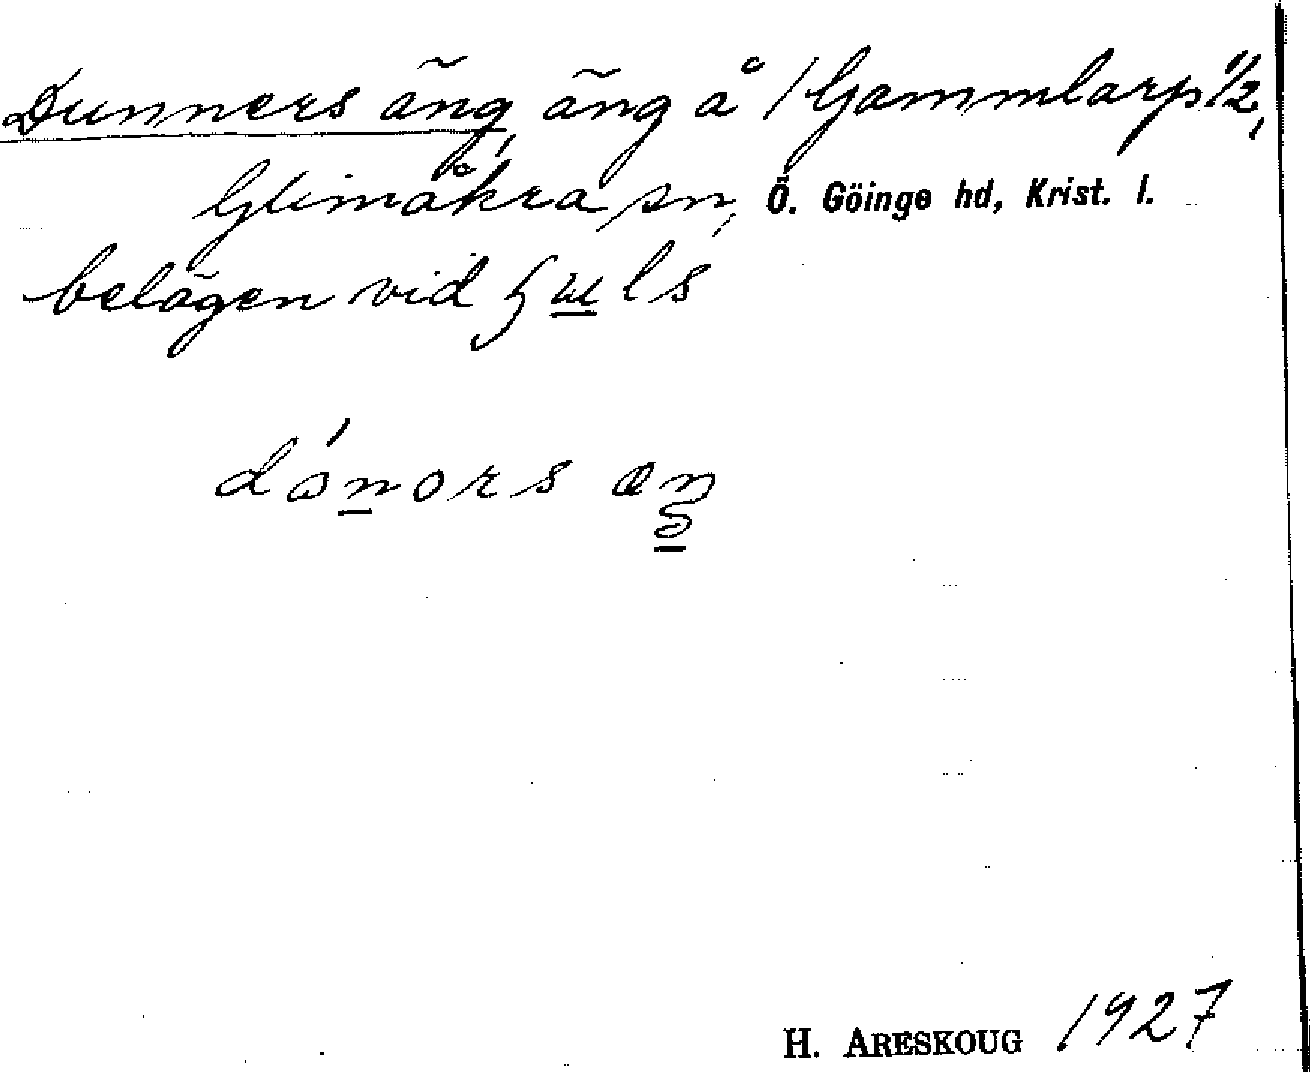 Dunners äng, äng å /Gammlarp 1/2,
Glimåkra sn, Ö. Göinge hd, Krist. l.
belägen vid
H. ARESKOUG 1927